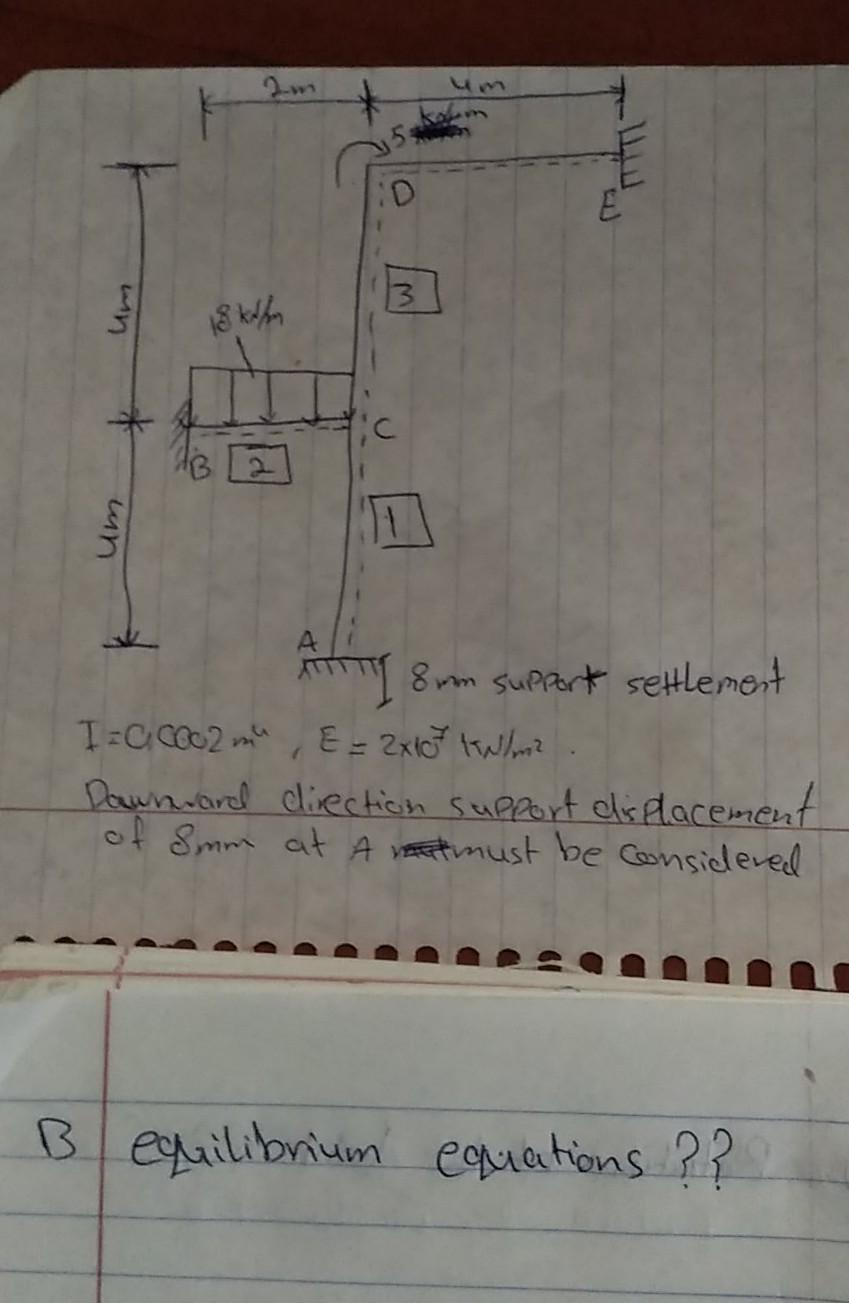 2m 4m
5
D
E
3
4m
18 kN/m
C
B 2
4m
1
A
8mm support settlement
I=0,0002 m⁴, E = 2x10⁷ kN/m².
Downward direction support displacement
of 8mm at A must be considered
B equilibrium equations ??